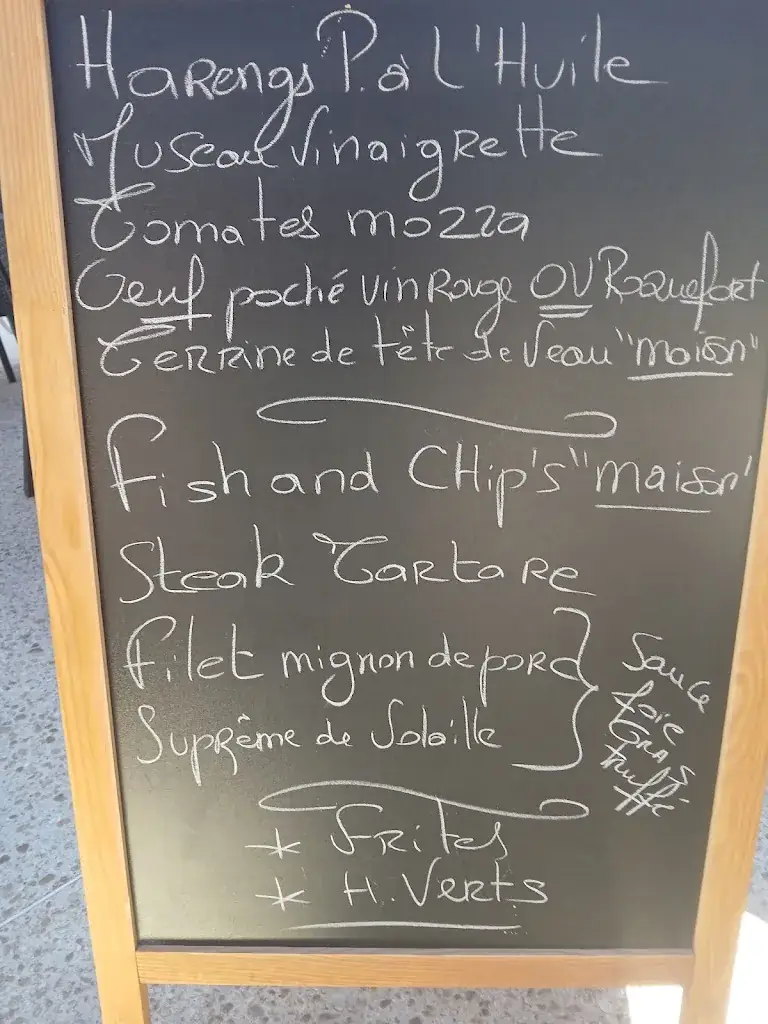 Harengs P. à L'Huile
Museau Vinaigrette
Tomates mozza
Oeuf poché vin Rouge OU Roquefort
Terrine de tête de Veau "maison"
Fish and CHip's "maison"
Steak Tartare
Filet mignon de porc
Suprême de Volaille
Sauce
foie
GRAS
truffé
* Frites
* H. Verts